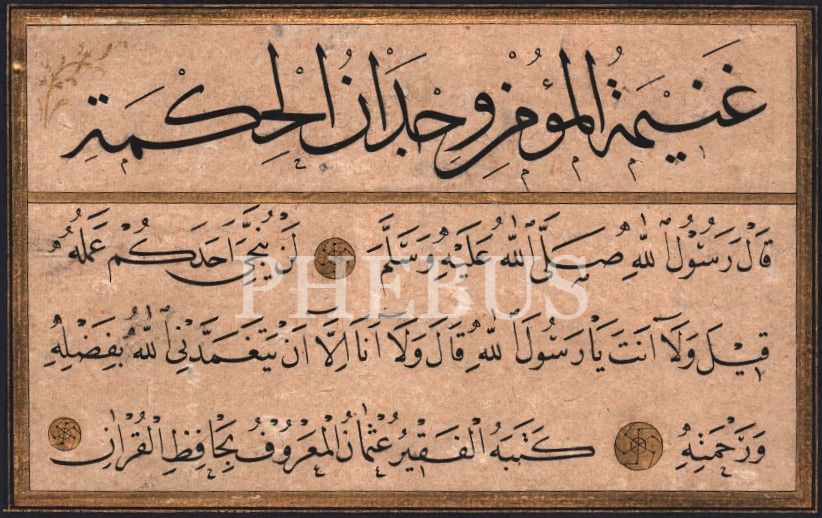 غَنِيمَةُ الْمُؤْمِنِ وِجْدَانُ الْحِكْمَةِ
قَالَ رَسُولُ اللهِ صَلَّى اللهُ عَلَيْهِ وَسَلَّمَ لَنْ يُنْجِيَ اَحَدَكُمْ عَمَلُهُ
قِيلَ وَلَا اَنْتَ يَا رَسُولَ اللهِ قَالَ وَلَا اَنَا اِلَّا اَنْ يَتَغَمَّدَنِيَ اللهُ بِفَضْلِهِ
وَرَحْمَتِهِ كَتَبَهُ الْفَقِيرُ عُثْمَانُ الْمَعْرُوفُ بِحَافِظِ الْقُرْاٰنِ
PHEBUS